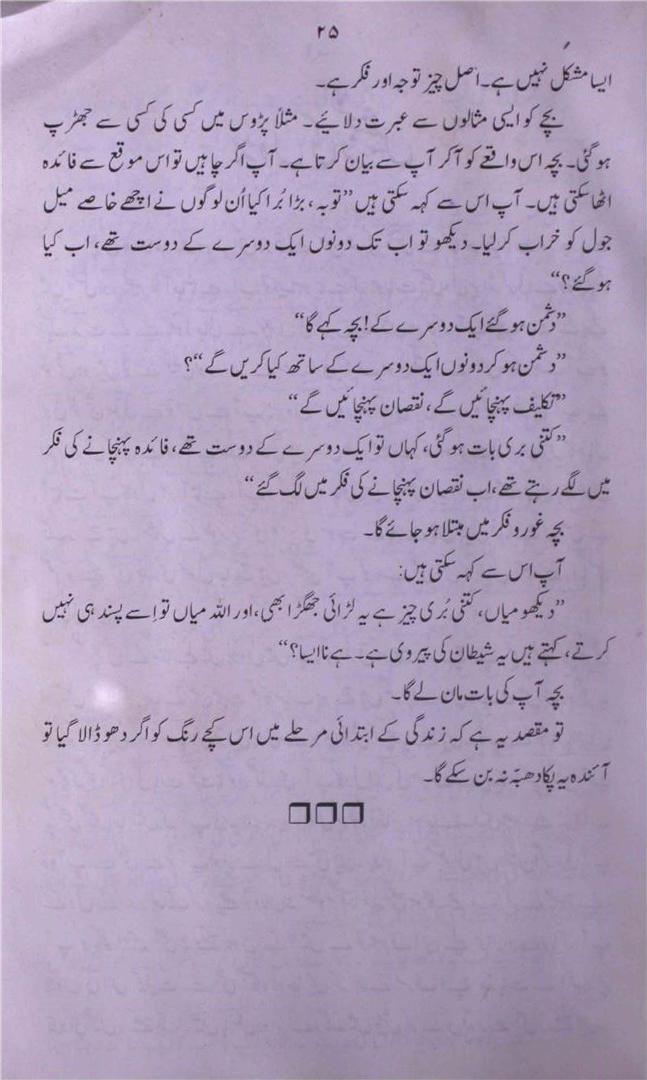 ۲۵
ایسا مشکل نہیں ہے۔ اصل چیز توجہ اور فکر ہے۔
بچے کو ایسی مثالوں سے عبرت دلائیے۔ مثلاً پڑوس میں کسی کی کسی سے جھڑپ
ہوگئی۔ بچہ اس واقعے کو آکر آپ سے بیان کرتا ہے۔ آپ اگر چاہیں تو اس موقع سے فائدہ
اٹھاسکتی ہیں۔ آپ اس سے کہہ سکتی ہیں ”توبہ، بڑا بُرا کیا اُن لوگوں نے اچھے خاصے میل
جول کو خراب کرلیا۔ دیکھو تو اب تک دونوں ایک دوسرے کے دوست تھے، اب کیا
ہوگئے؟“
”دشمن ہوگئے ایک دوسرے کے! بچہ کہے گا“
”دشمن ہوکر دونوں ایک دوسرے کے ساتھ کیا کریں گے“؟
”تکلیف پہنچائیں گے، نقصان پہنچائیں گے“
”کتنی بری بات ہوگئی، کہاں تو ایک دوسرے کے دوست تھے، فائدہ پہنچانے کی فکر
میں لگے رہتے تھے، اب نقصان پہنچانے کی فکر میں لگ گئے“
بچہ غور و فکر میں مبتلا ہوجائے گا۔
آپ اس سے کہہ سکتی ہیں:
”دیکھو میاں، کتنی بُری چیز ہے یہ لڑائی جھگڑا بھی، اور اللہ میاں تو اِسے پسند ہی نہیں
کرتے، کہتے ہیں یہ شیطان کی پیروی ہے۔ ہے نا ایسا؟“
بچہ آپ کی بات مان لے گا۔
تو مقصد یہ ہے کہ زندگی کے ابتدائی مرحلے میں اس کچے رنگ کو اگر دھو ڈالا گیا تو
آئندہ یہ پکا دھبّہ نہ بن سکے گا۔